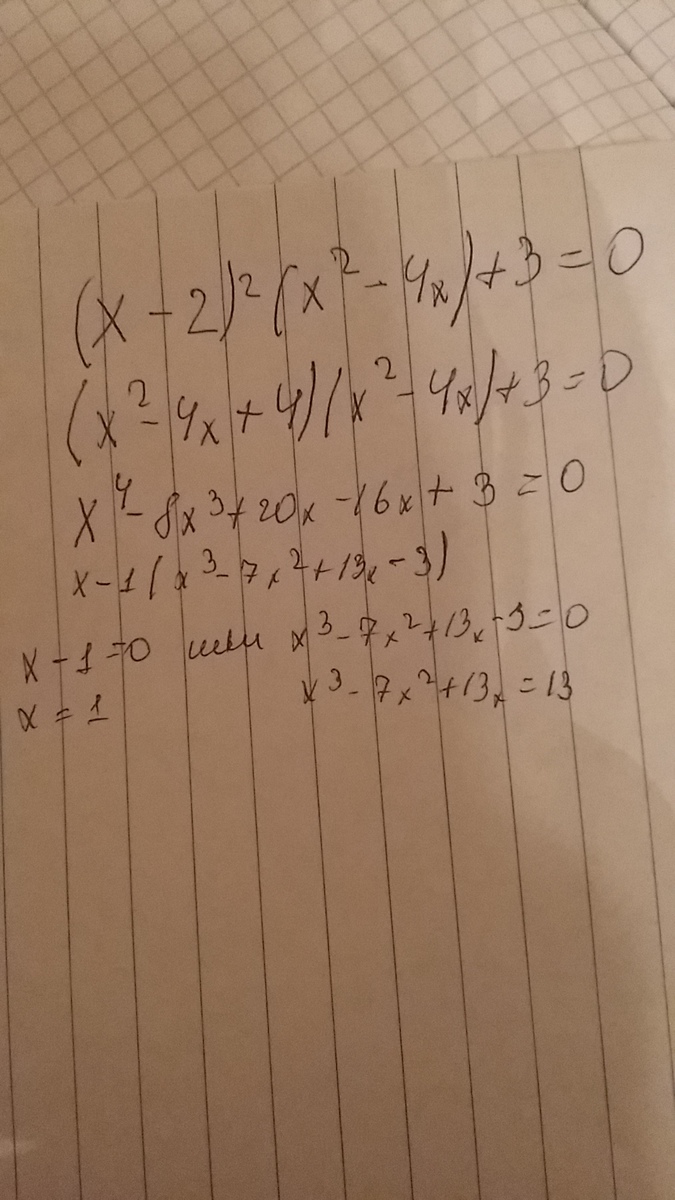 (x - 2)² (x² - 4x) + 3 = 0
(x² - 4x + 4) (x² - 4x) + 3 = 0
x⁴ - 8x³ + 20x - 16x + 3 = 0
x - 1 (x³ - 7x² + 13x - 3)
x - 1 = 0 или x³ - 7x² + 13x - 3 = 0
x = 1 x³ - 7x² + 13x = 13